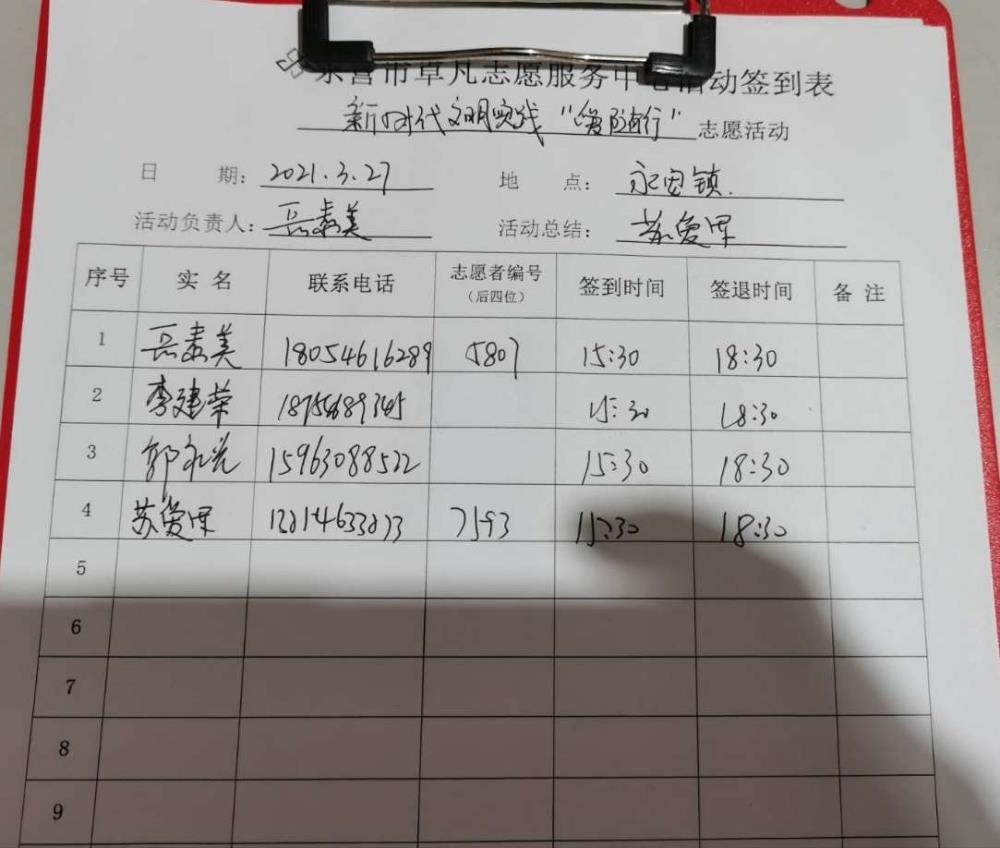 东营市卓凡志愿服务中心活动签到表
新时代文明实践“爱随行”志愿活动
日 期：2021.3.27 地 点：永固镇.
活动负责人：岳素美 活动总结：苏爱军
序号 实名 联系电话 志愿者编号（后四位） 签到时间 签退时间 备注
1 岳素美 18054616289 5807 15:30 18:30
2 李建荣 15:30 18:30
3 郭永光 15963088522 15:30 18:30
4 苏爱军 7193 15:30 18:30
5
6
7
8
9